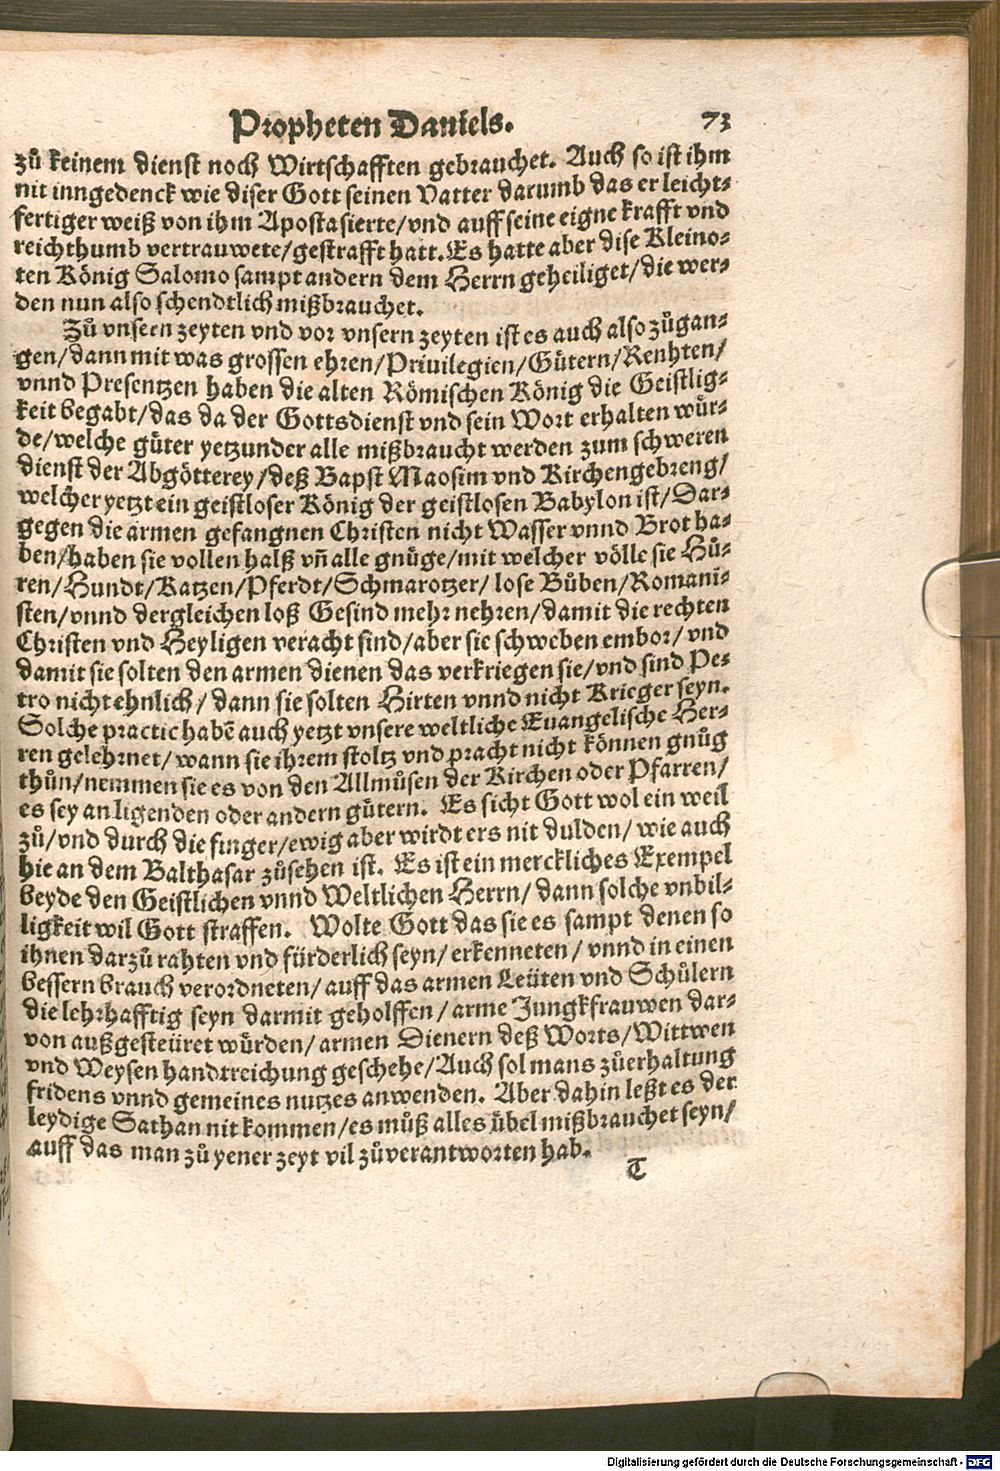 Propheten Daniels. 73
zů keinem dienst noch Wirtschafften gebrauchet. Auch so ist ihm
nit inngedenck wie diser Gott seinen Vatter darumb das er leicht-
fertiger weiß von ihm Apostasierte/vnd auff seine eigne krafft vnd
reichthumb vertrauwete/gestrafft hatt. Es hatte aber dise Kleino-
ten König Salomo sampt andern dem Herrn geheiliget/die wer-
den nun also schendtlich mißbrauchet.
Zů vnsern zeyten vnd vor vnsern zeyten ist es auch also zůgan-
gen/dann mit was grossen ehren/Priuilegien/Gütern/Renhten/
vnnd Presentzen haben die alten Römischen König die Geistlig-
keit begabt/das da der Gottsdienst vnd sein Wort erhalten wür-
de/welche güter yetzunder alle mißbraucht werden zum schweren
dienst der Abgötterey/deß Bapst Maosim vnd Kirchengebreng/
welcher yetzt ein geistloser König der geistlosen Babylon ist/Dar-
gegen die armen gefangnen Christen nicht Wasser vnnd Brot ha-
ben/haben sie vollen halß vñ alle gnüge/mit welcher völle sie Hů-
ren/Hundt/Katzen/Pferdt/Schmarotzer/ lose Bůben/Romani-
sten/vnnd dergleichen loß Gesind mehr nehren/damit die rechten
Christen vnd Heyligen veracht sind/aber sie schweben embor/vnd
damit sie solten den armen dienen das verkriegen sie/vnd sind Pe-
tro nicht ehnlich/ dann sie solten Hirten vnnd nicht Krieger seyn.
Solche practic habē auch yetzt vnsere weltliche Euangelische Her-
ren gelehrnet/wann sie ihrem stoltz vnd pracht nicht können gnůg
thůn/nemmen sie es von den Allmůsen der Kirchen oder Pfarren/
es sey an ligenden oder andern gütern. Es sicht Gott wol ein weil
zů/vnd durch die finger/ewig aber wirdt ers nit dulden/wie auch
hie an dem Balthasar zůsehen ist. Es ist ein merckliches Exempel
beyde den Geistlichen vnnd Weltlichen Herrn/dann solche vnbil-
ligkeit wil Gott straffen. Wolte Gott das sie es sampt denen so
ihnen darzů rahten vnd fürderlich seyn/erkenneten/vnnd in einen
bessern brauch verordneten/auff das armen Leüten vnd Schůlern
die lehrhafftig seyn darmit geholffen/arme Jungkfrauwen dar-
von außgesteüret würden/armen Dienern deß Worts/Wittwen
vnd Weysen handtreichung geschehe/Auch sol mans zůerhaltung
fridens vnnd gemeines nutzes anwenden. Aber dahin leßt es der
leydige Sathan nit kommen/es můß alles übel mißbrauchet seyn/
auff das man zů yener zeyt vil zůverantworten hab.
T
Digitalisierung gefördert durch die Deutsche Forschungsgemeinschaft - DFG